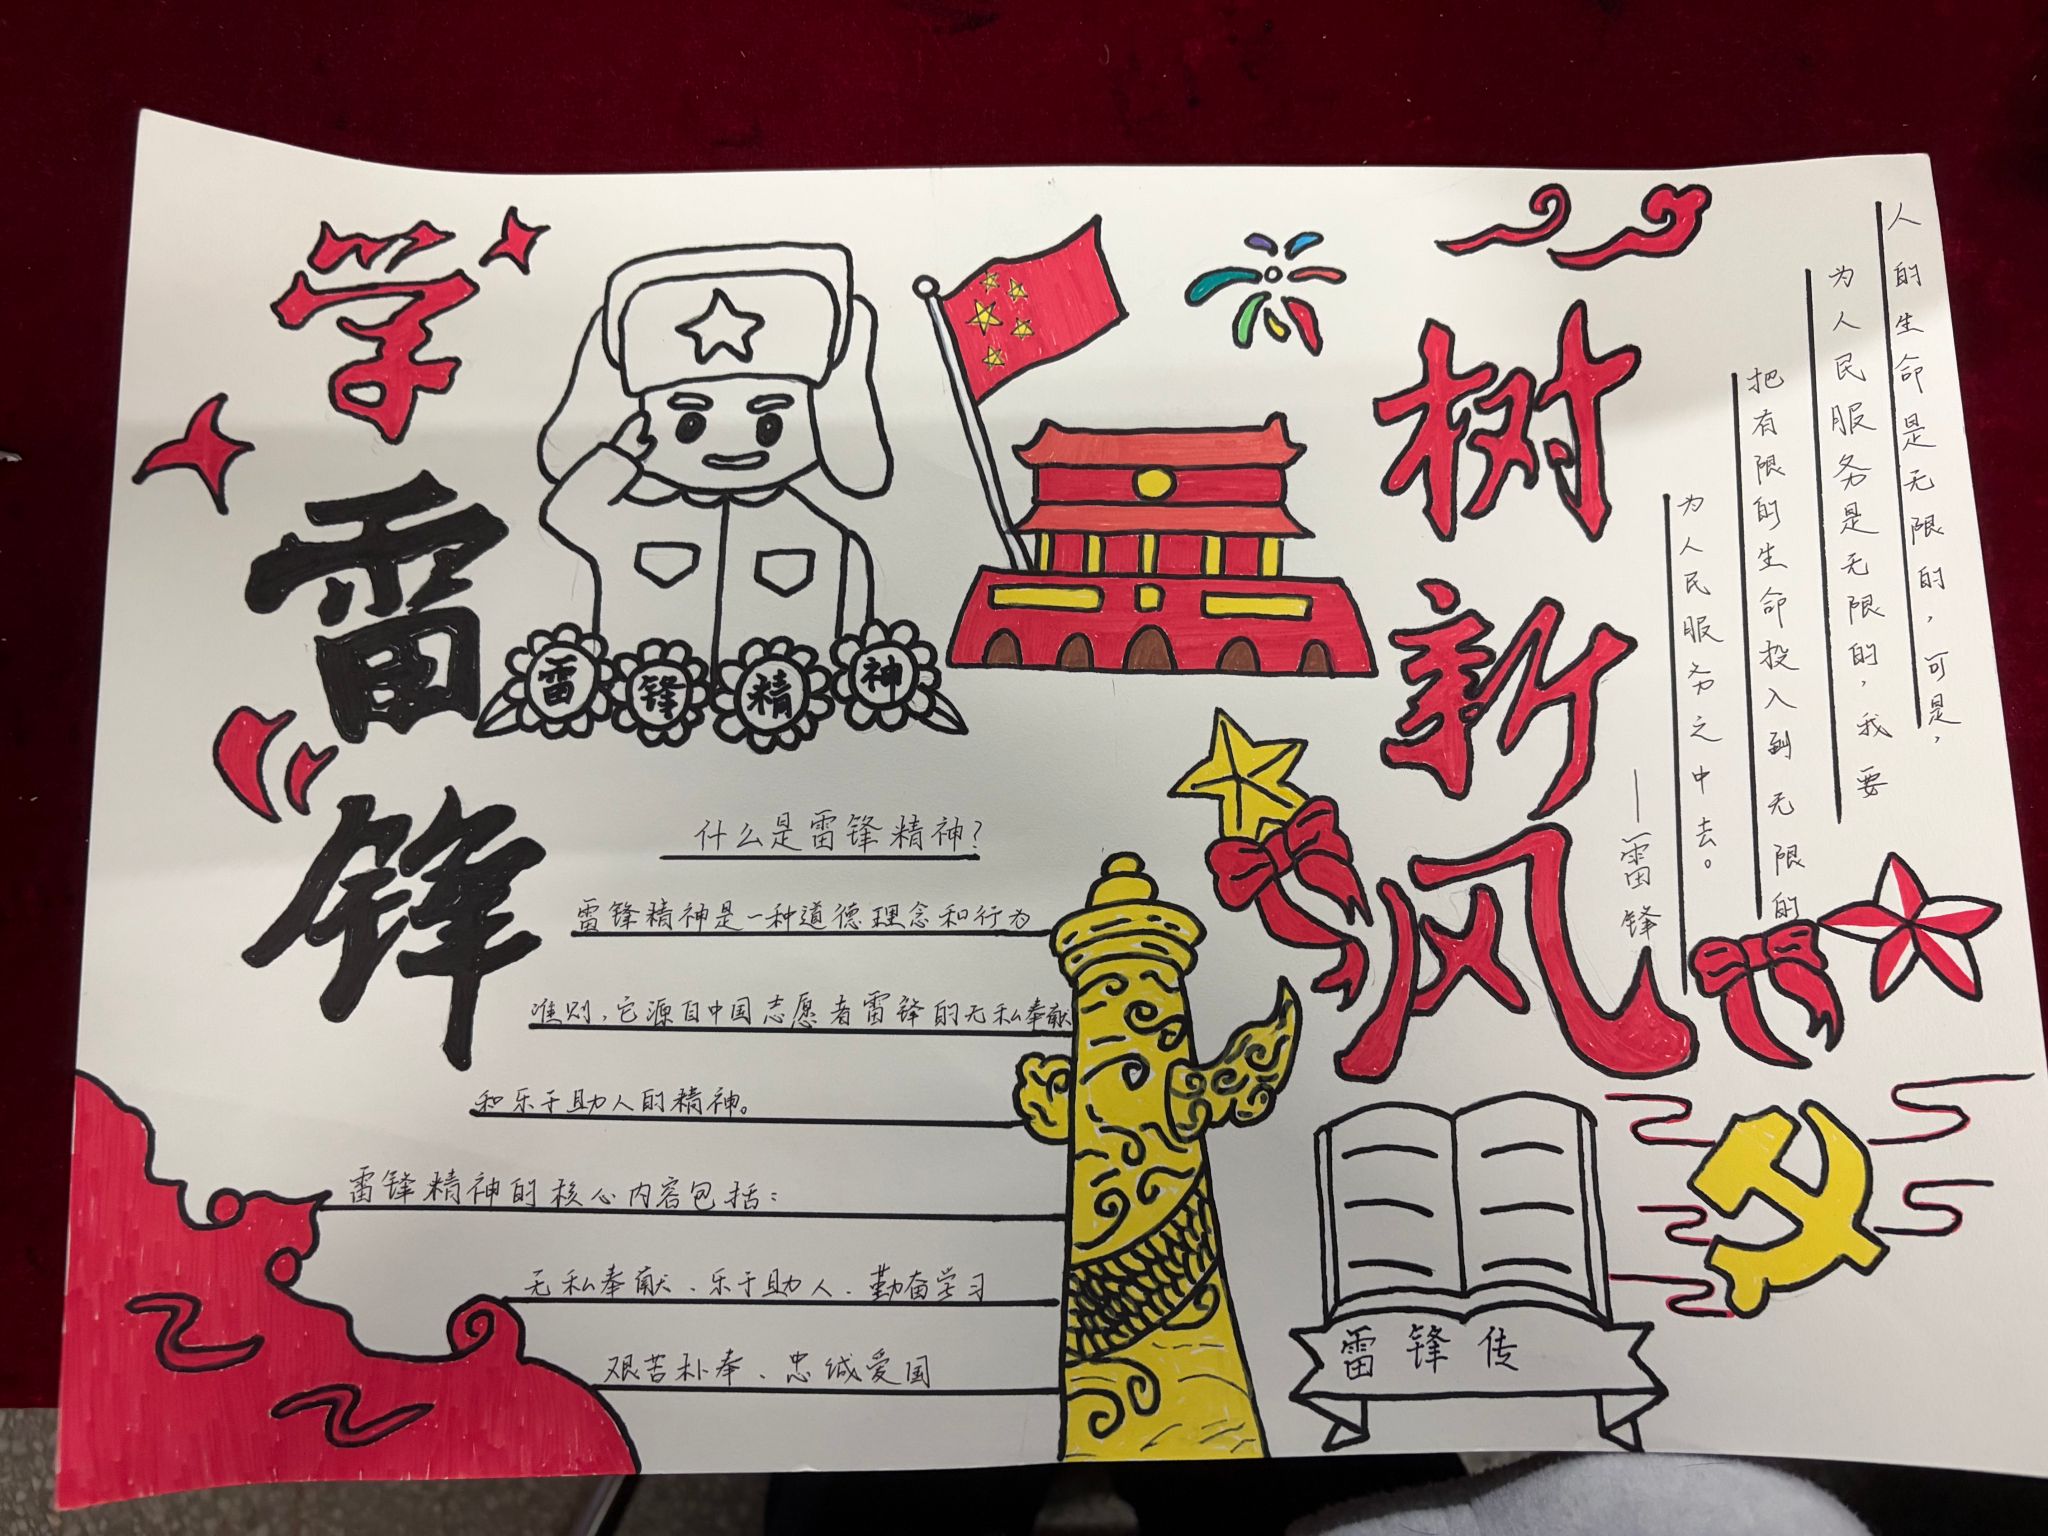 学雷锋
树新风
雷锋精神
什么是雷锋精神?
雷锋精神是一种道德理念和行为
准则,它源自中国志愿者雷锋的无私奉献
和乐于助人的精神。
雷锋精神的核心内容包括:
无私奉献、乐于助人、勤奋学习
艰苦朴奉、忠诚爱国
人的生命是无限的,可是,
为人民服务是无限的,我要
把有限的生命投入到无限的
为人民服务之中去。
—雷锋
雷锋传